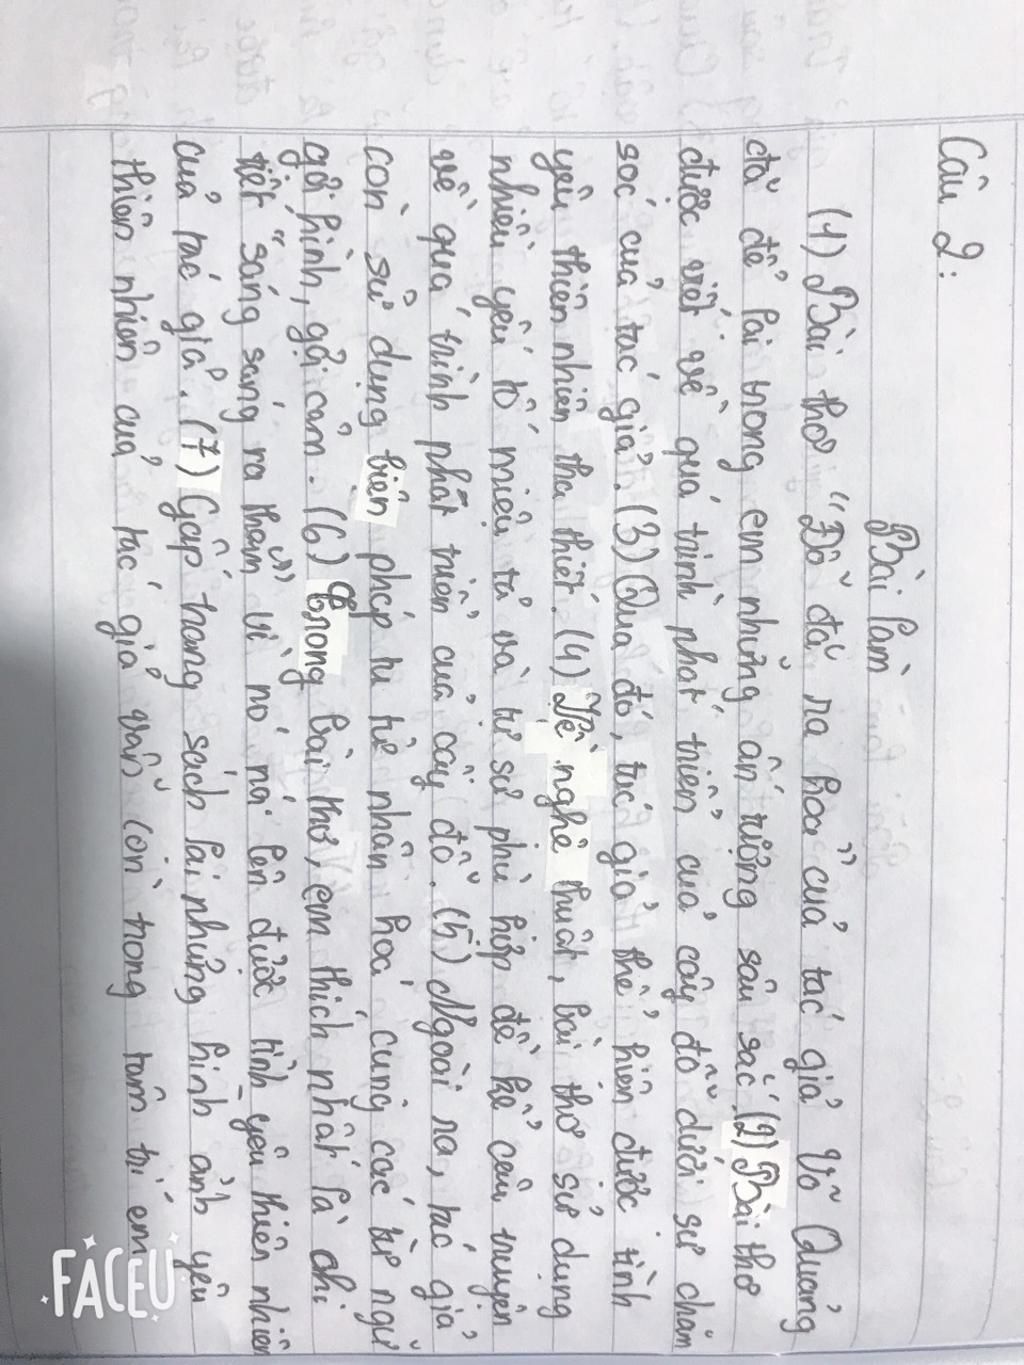 Câu 2:
Bài làm
(1) Bài thơ "Đỗ đã ra hoa" của tác giả Võ Quảng
đã để lại trong em những ấn tượng sâu sắc. (2) Bài thơ
được viết về quá trình phát triển của cây đỗ dưới sự chăm
sóc của tác giả. (3) Qua đó, tác giả thể hiện được tình
yêu thiên nhiên tha thiết. (4) Về nghệ thuật, bài thơ sử dụng
nhiều yếu tố miêu tả và tự sự phù hợp để kể câu truyện
về quá trình phát triển của cây đỗ. (5) Ngoài ra, tác giả
còn sử dụng biện pháp tu từ nhân hoá cùng các từ ngữ
gợi hình, gợi cảm. (6) Trong bài thơ, em thích nhất là chi
tiết "sáng sáng ra thăm" vì nó nói lên được tình yêu thiên nhiên
của tác giả. (7) Gấp trang sách lại những hình ảnh yêu
thiên nhiên của tác giả vẫn còn trong tâm trí em
FACEU